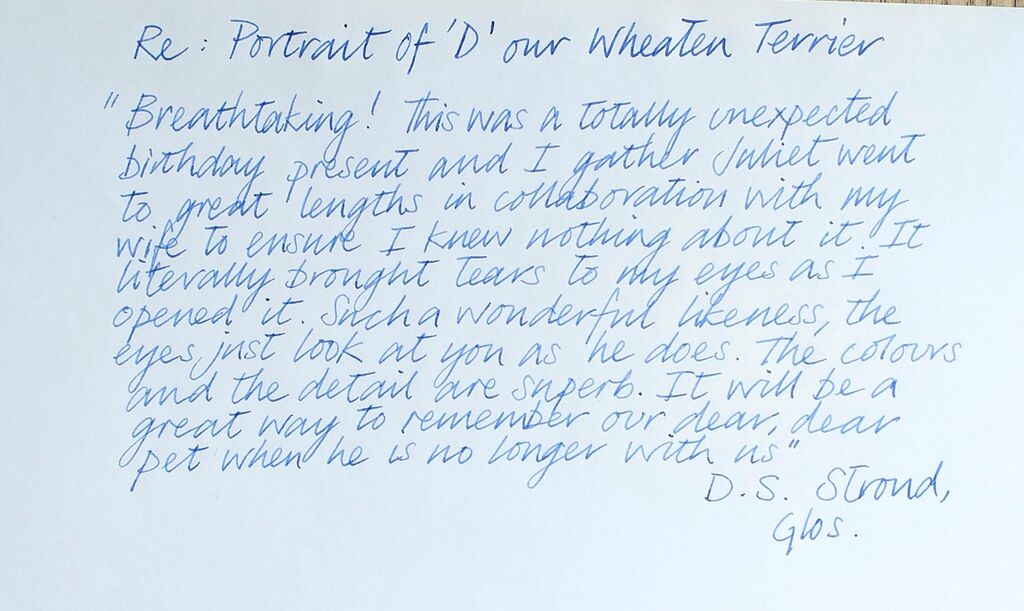 Re: Portrait of 'D' our Wheaten Terrier
"Breathtaking! This was a totally unexpected
birthday present and I gather Juliet went
to great lengths in collaboration with my
wife to ensure I knew nothing about it. It
literally brought tears to my eyes as I
opened it. Such a wonderful likeness, the
eyes just look at you as he does. The colours
and the detail are superb. It will be a
great way to remember our dear, dear
pet when he is no longer with us"
D.S. Stroud,
Glos.